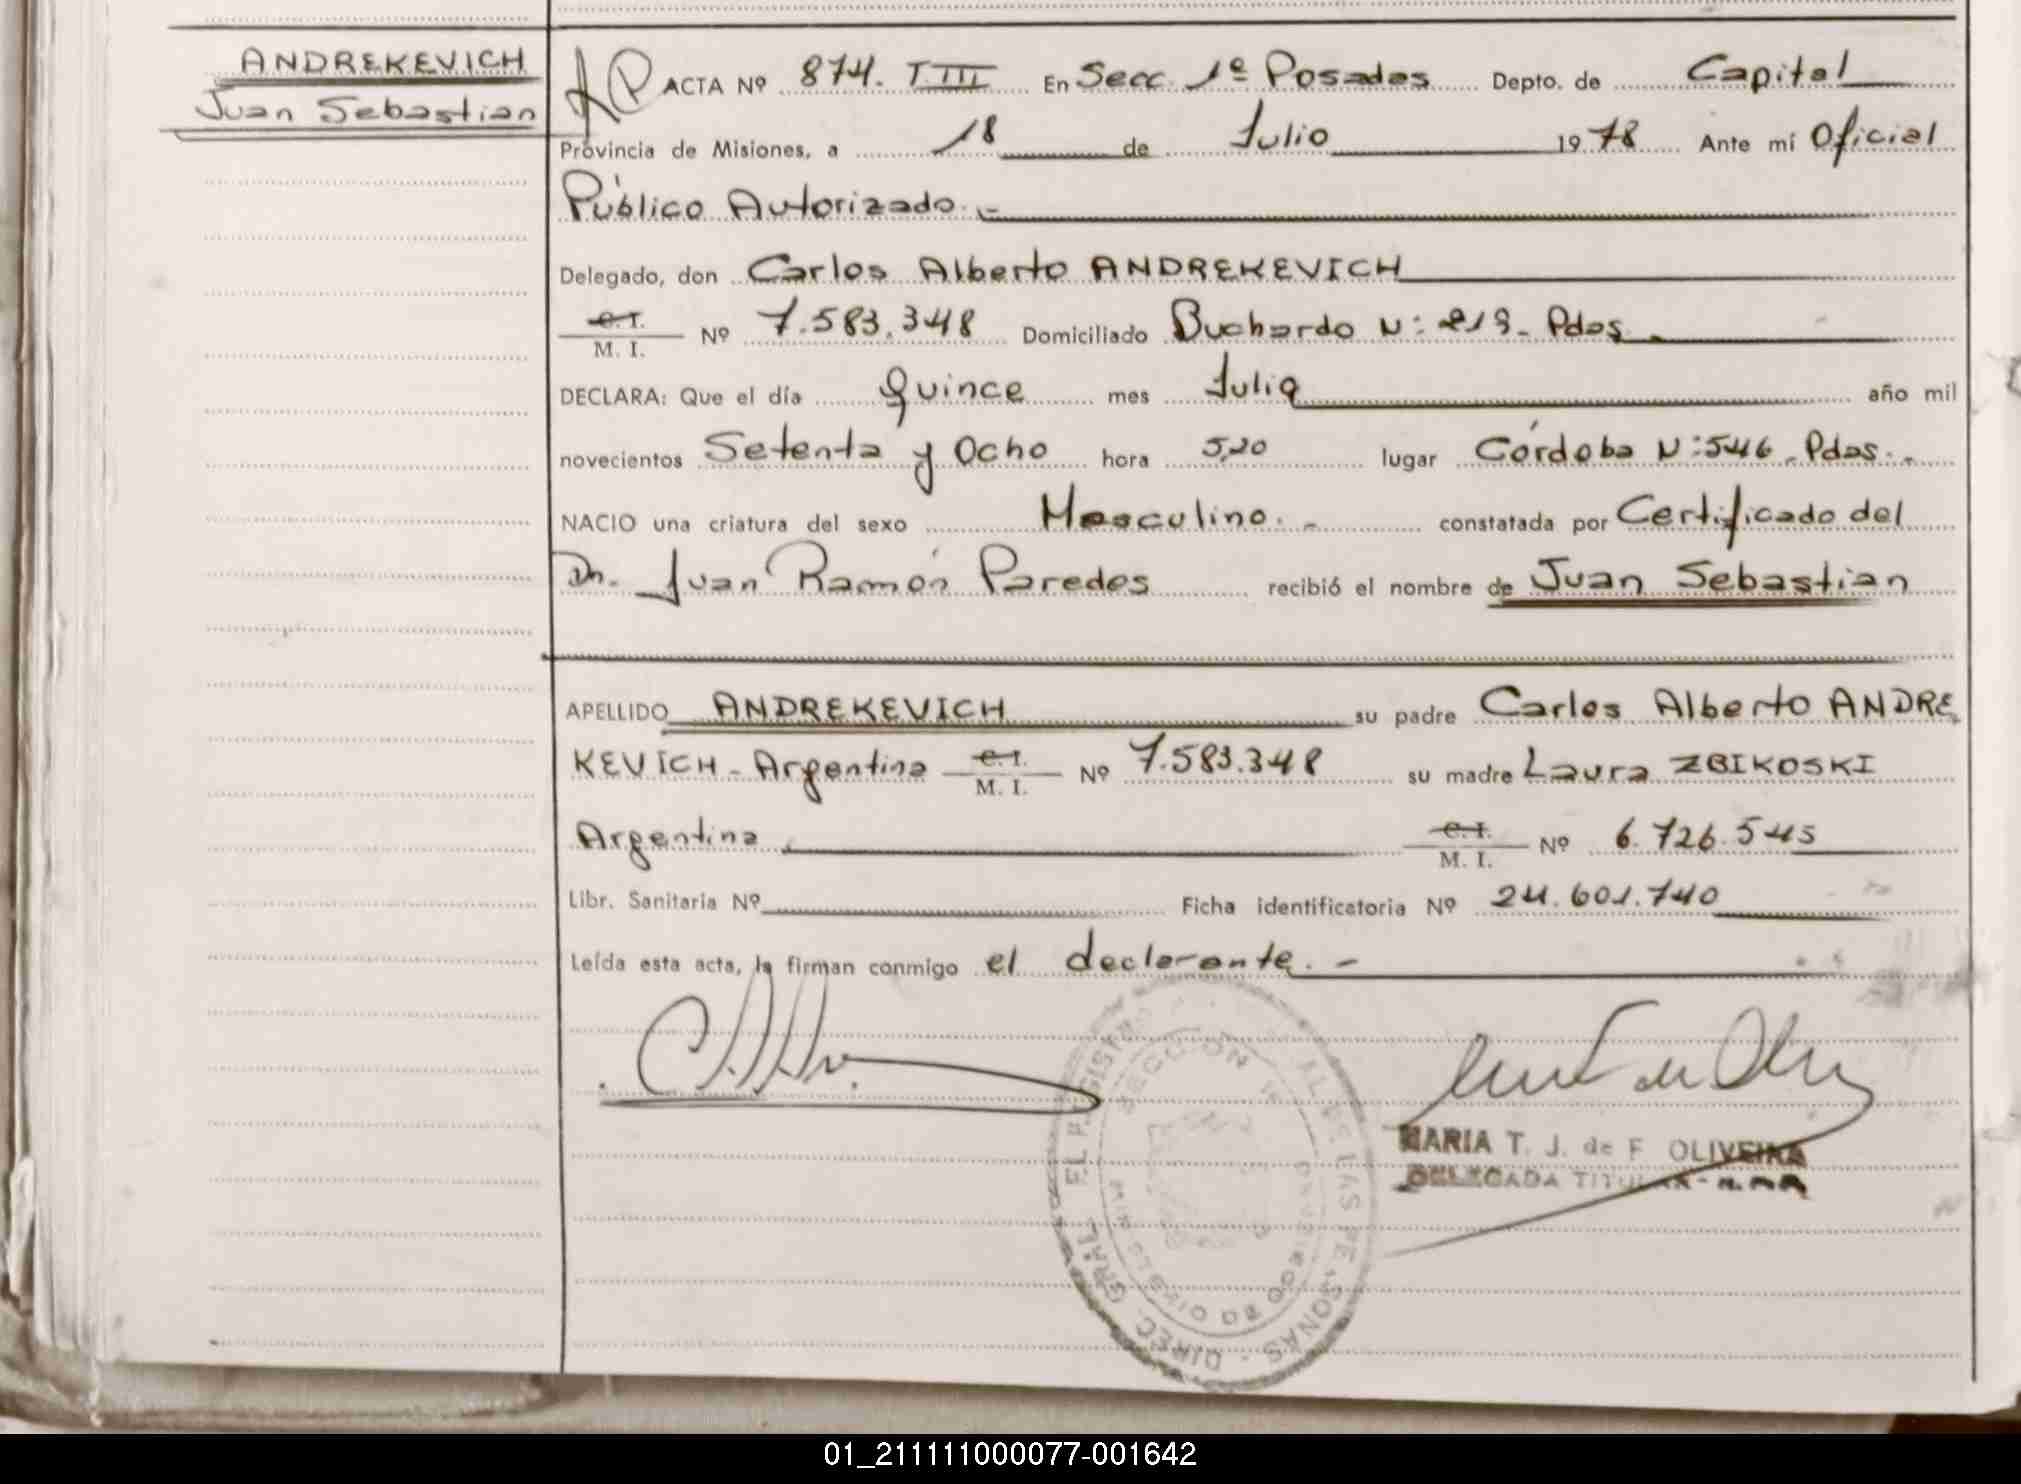 ANDREKEVICH
Juan Sebastian
ACTA Nº 874. T. III En Secc. 1º Posadas Depto. de Capital
Provincia de Misiones, a 18 de Julio 1978 Ante mí Oficial
Público Autorizado.-
Delegado, don Carlos Alberto ANDREKEVICH
C.I.
M. I. Nº 7.583.348 Domiciliado Buchardo N: 219- Pdas
DECLARA: Que el día Quince mes Julio año mil
novecientos Setenta y Ocho hora 5,20 lugar Córdoba N:546-Pdas.-
NACIO una criatura del sexo Masculino.- constatada por Certificado del
Dr. Juan Ramón Paredes recibió el nombre de Juan Sebastian
APELLIDO ANDREKEVICH su padre Carlos Alberto ANDRE
KEVICH-Argentina C.I. Nº 7.583.348 su madre Laura ZBIKOSKI
M. I.
Argentina C.I. Nº 6.726.545
M. I.
Libr. Sanitaria Nº Ficha identificatoria Nº 24.601.740
Leída esta acta, la firman conmigo el declarante.-
SECCION
DIREC. GRAL. EL REGISTRO
MARIA T. J. de F OLIVEIRA
DELEGADA TITULAR
01_211111000077-001642